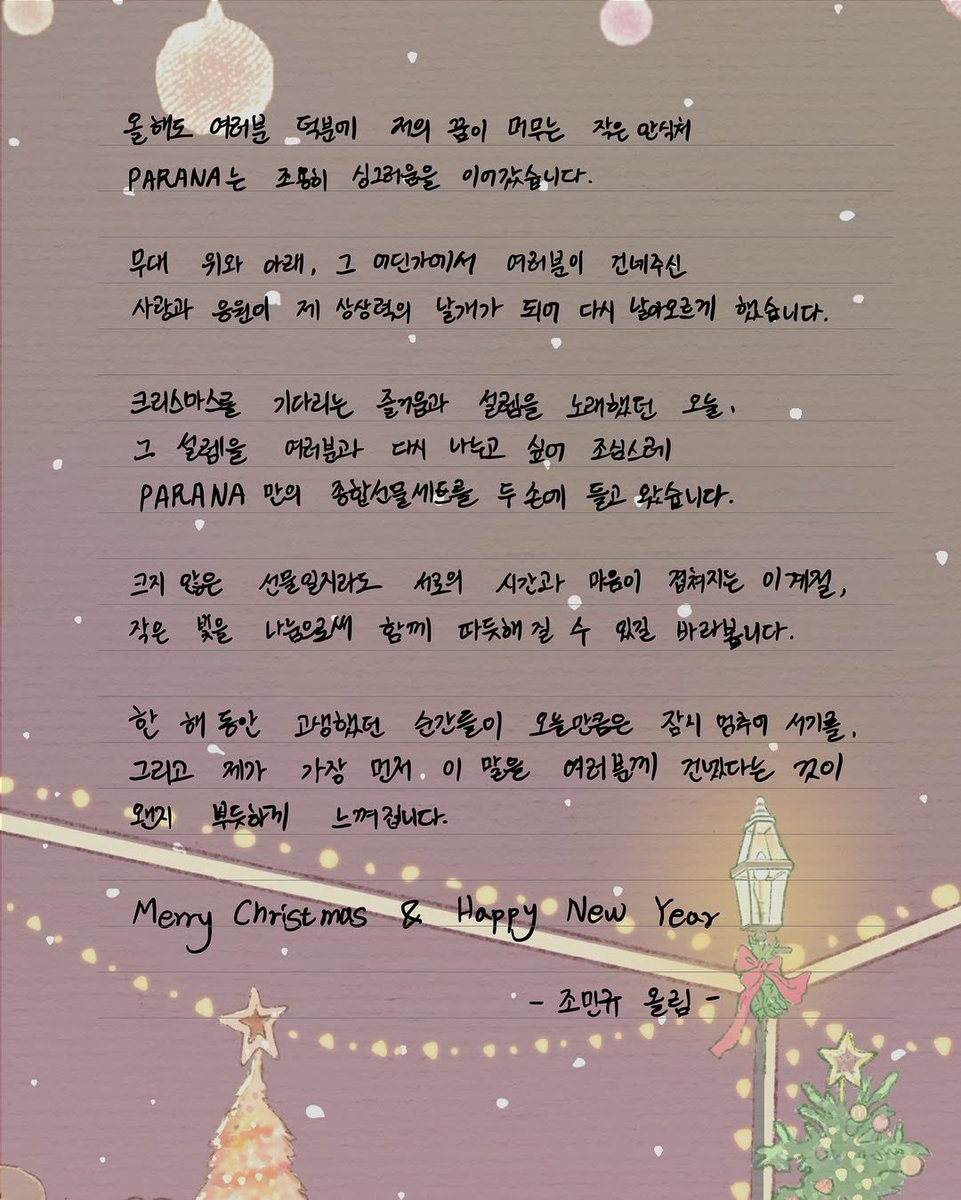 올해도 여러분 덕분에 저의 꿈이 머무는 작은 안식처
PARANA는 조용히 싱그러움을 이어갔습니다.
무대 위와 아래, 그 어딘가에서 여러분이 건네주신
사랑과 응원이 제 상상력의 날개가 되어 다시 날아오르게 했습니다.
크리스마스를 기다리는 즐거움과 설렘을 노래했던 오늘,
그 설렘을 여러분과 다시 나누고 싶어 조심스레
PARANA 만의 종합선물세트를 두 손에 들고 왔습니다.
크지 않은 선물일지라도 서로의 시간과 마음이 겹쳐지는 이 계절,
작은 빛을 나눔으로써 함께 따듯해 질 수 있길 바라봅니다.
한 해 동안 고생했던 순간들이 오늘만큼은 잠시 멈추어 서기를,
그리고 제가 가장 먼저 이 말을 여러분께 건넸다는 것이
왠지 뿌듯하게 느껴집니다.
Merry Christmas & Happy New Year
- 조민규 올림 -